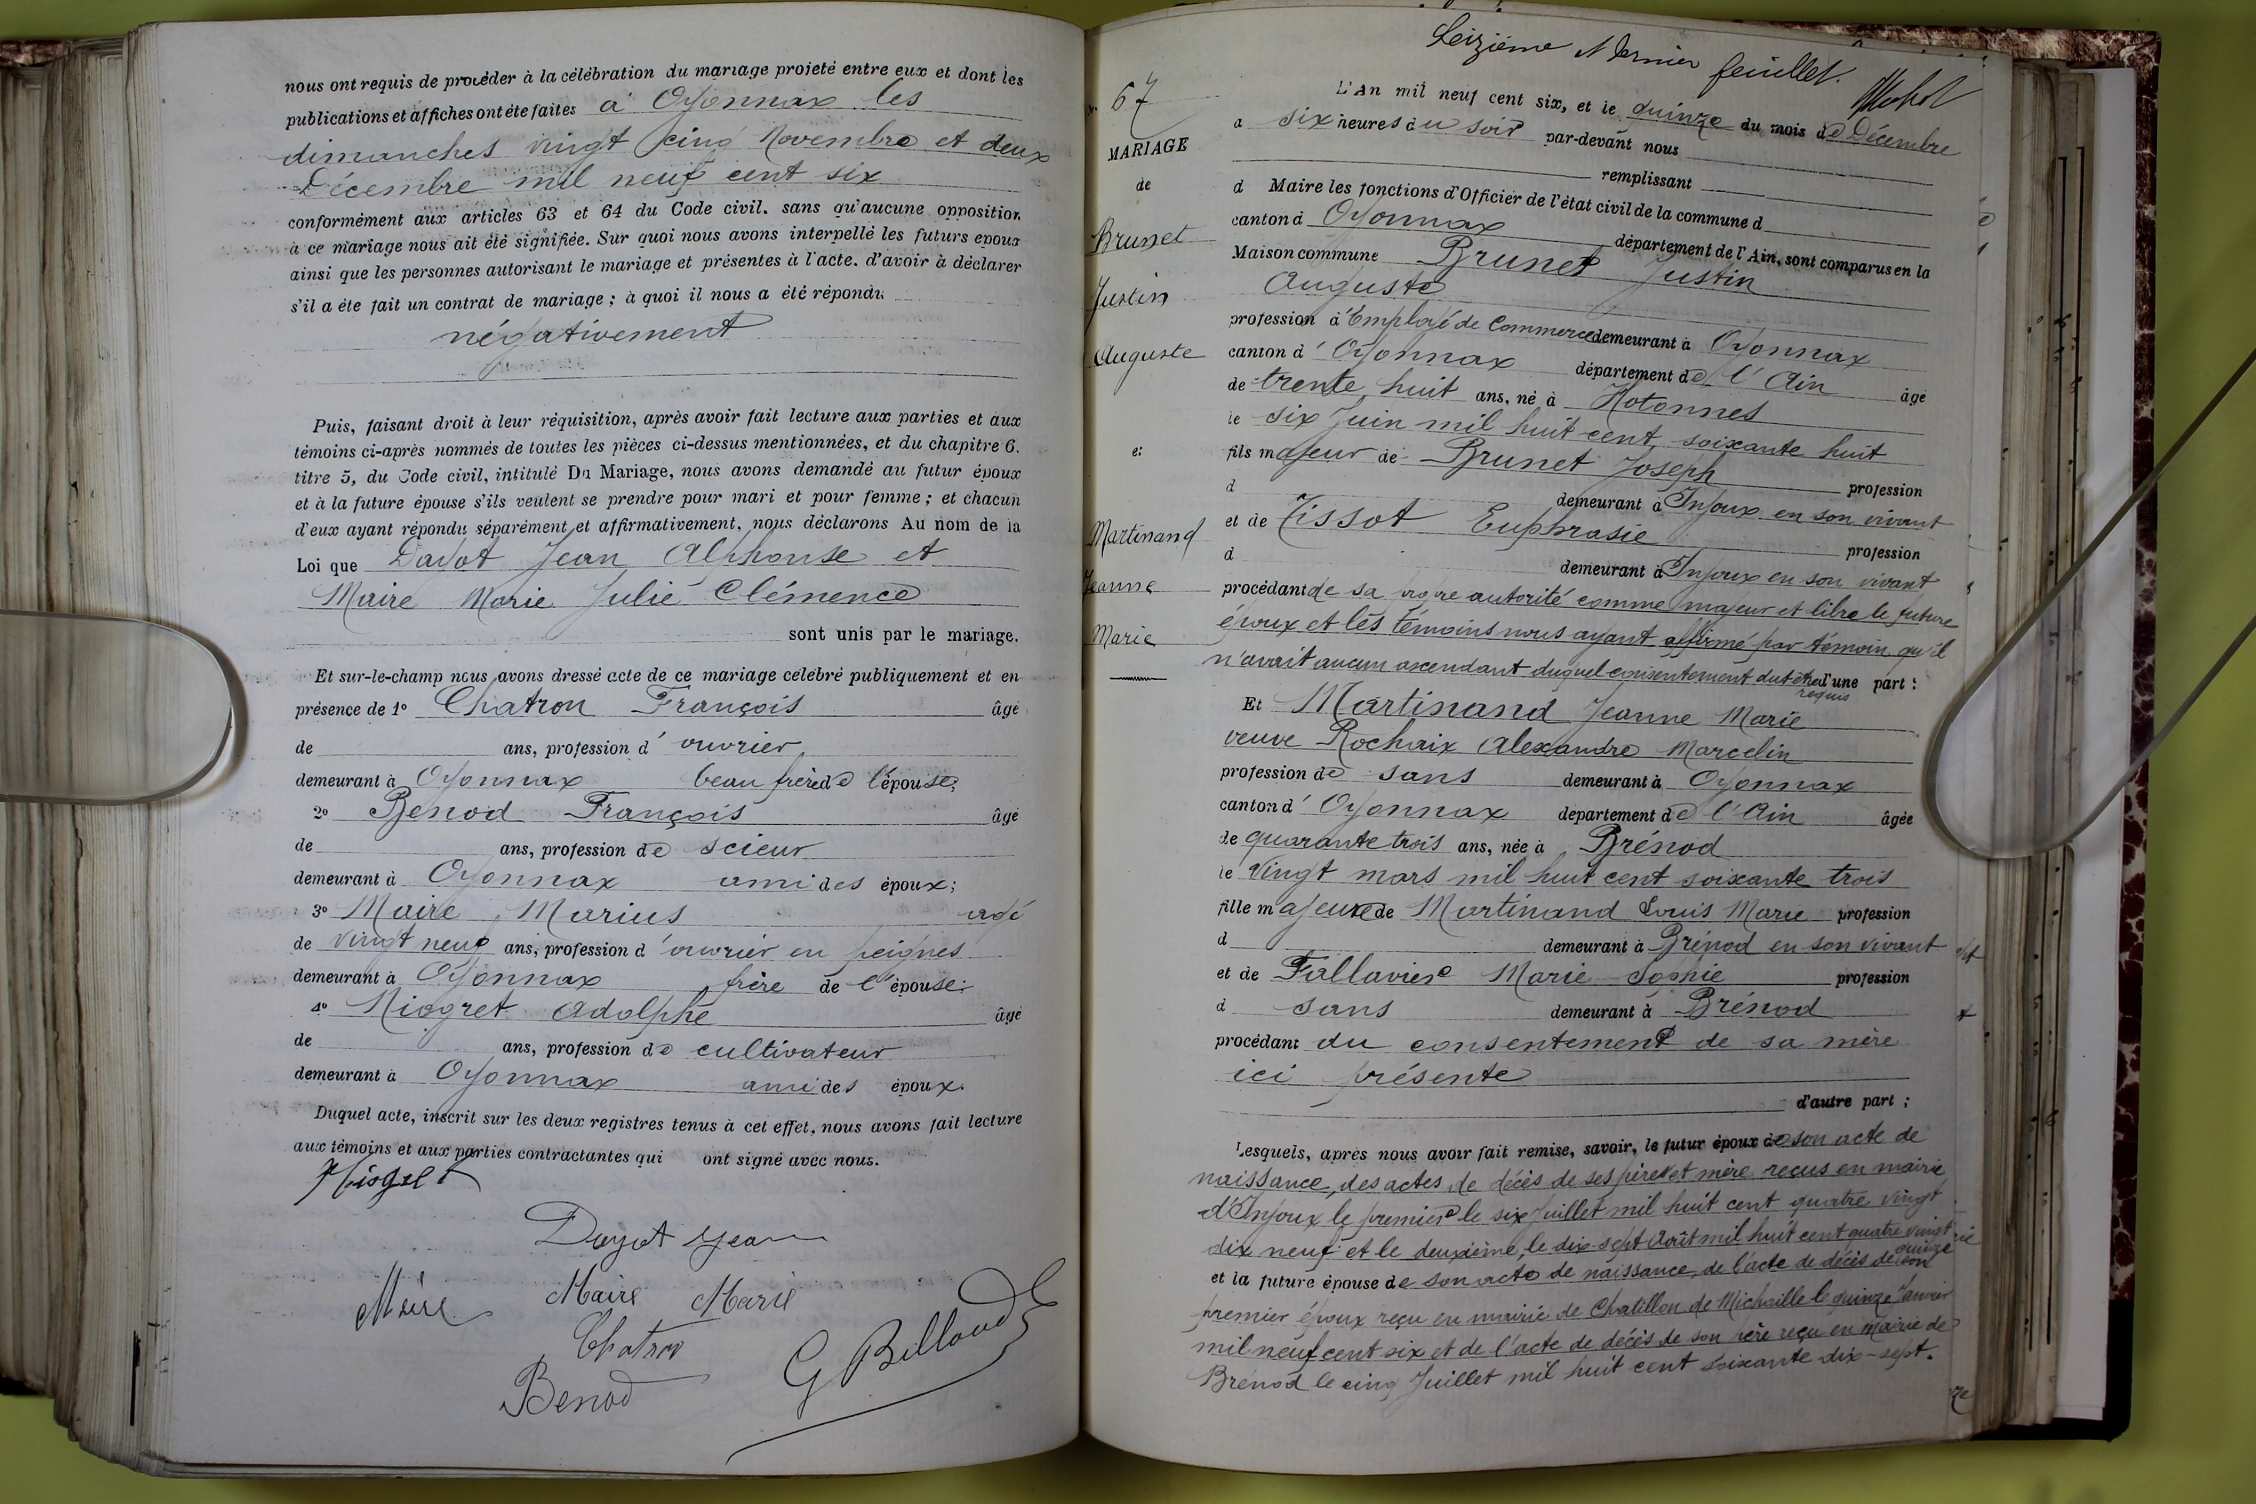 nous ont requis de procéder à la célébration du mariage projeté entre eux et dont les
publications et affiches ont été faites à Oyonnax les
dimanches vingt cinq Novembre et deux
Décembre mil neuf cent six
conformément aux articles 63 et 64 du Code civil. sans qu'aucune opposition
à ce mariage nous ait été signifiée. Sur quoi nous avons interpellé les futurs époux
ainsi que les personnes autorisant le mariage et présentes à l'acte. d'avoir à déclarer
s'il a été fait un contrat de mariage ; à quoi il nous a été répondu
négativement
Puis, faisant droit à leur réquisition, après avoir fait lecture aux parties et aux
témoins ci-après nommés de toutes les pièces ci-dessus mentionnées, et du chapitre 6.
titre 5, du Code civil, intitulé Du Mariage, nous avons demandé au futur époux
et à la future épouse s'ils veulent se prendre pour mari et pour femme ; et chacun
d'eux ayant répondu séparément et affirmativement, nous déclarons Au nom de la
Loi que Davot Jean Alphonse et
Maire Marie Julie Clémence
sont unis par le mariage.
Et sur-le-champ nous avons dressé acte de ce mariage célébré publiquement et en
présence de 1° Chatron François âgé
de ans, profession d'ouvrier
demeurant à Oyonnax beau frère de l'épouse;
2° Benod François âgé
de ans, profession de scieur
demeurant à Oyonnax ami des époux;
3° Maire Marius agé
de vingt neuf ans, profession d'ouvrier en peignes
demeurant à Oyonnax frère de l'épouse;
4° Niogret Adolphe âgé
de ans, profession de cultivateur
demeurant à Oyonnax ami des époux.
Duquel acte, inscrit sur les deux registres tenus à cet effet, nous avons fait lecture
aux témoins et aux parties contractantes qui ont signé avec nous.
Niogret
Davot Jean
Maire Maire Marie
Chatron
Benod G Billoud
Seizième et dernier feuillet.
N. 67
MARIAGE
de
Brunet
Justin
Auguste
et
Martinand
Jeanne
Marie
L'An mil neuf cent six, et le quinze du mois de Décembre
a six heures du soir par-devant nous
remplissant
d Maire les fonctions d'Officier de l'état civil de la commune d
canton d Oyonnax département de l'Ain, sont comparus en la
Maison commune Brunet Justin
Auguste
profession d'Employé de Commerce demeurant à Oyonnax
canton d'Oyonnax département de l'Ain âgé
de trente huit ans, né à Hotonnes
le six Juin mil huit cent soixante huit
fils majeur de Brunet Joseph profession
d demeurant à Injoux en son vivant
et de Tissot Euphrasie profession
d demeurant à Injoux en son vivant
procédant de sa propre autorité comme majeur et libre le future
époux et les témoins nous ayant affirmé par témoin qu'il
n'avait aucun ascendant duquel consentement dut être requis d'une part :
Et Martinand Jeanne Marie
veuve Rochaix Alexandre Marcelin
profession de sans demeurant à Oyonnax
canton d'Oyonnax département de l'Ain âgée
de quarante trois ans, née à Brénod
le vingt mars mil huit cent soixante trois
fille majeure de Martinand Louis Marie profession
d demeurant à Brénod en son vivant
et de Fallavier Marie Sophie profession
d sans demeurant à Brénod
procédant du consentement de sa mère
ici présente
d'autre part ;
Lesquels, après nous avoir fait remise, savoir, le futur époux de son acte de
naissance, des actes de décès de ses père et mère reçus en mairie
d'Injoux le premier le six Juillet mil huit cent quatre vingt
dix neuf et le deuxième, le dix-sept Août mil huit cent quatre vingt quinze
et la future épouse de son acte de naissance, de l'acte de décès de son
premier époux reçu en mairie de Chatillon de Michaille le quinze Janvier
mil neuf cent six et de l'acte de décès de son père reçu en mairie de
Brénod le cinq Juillet mil huit cent soixante dix-sept.